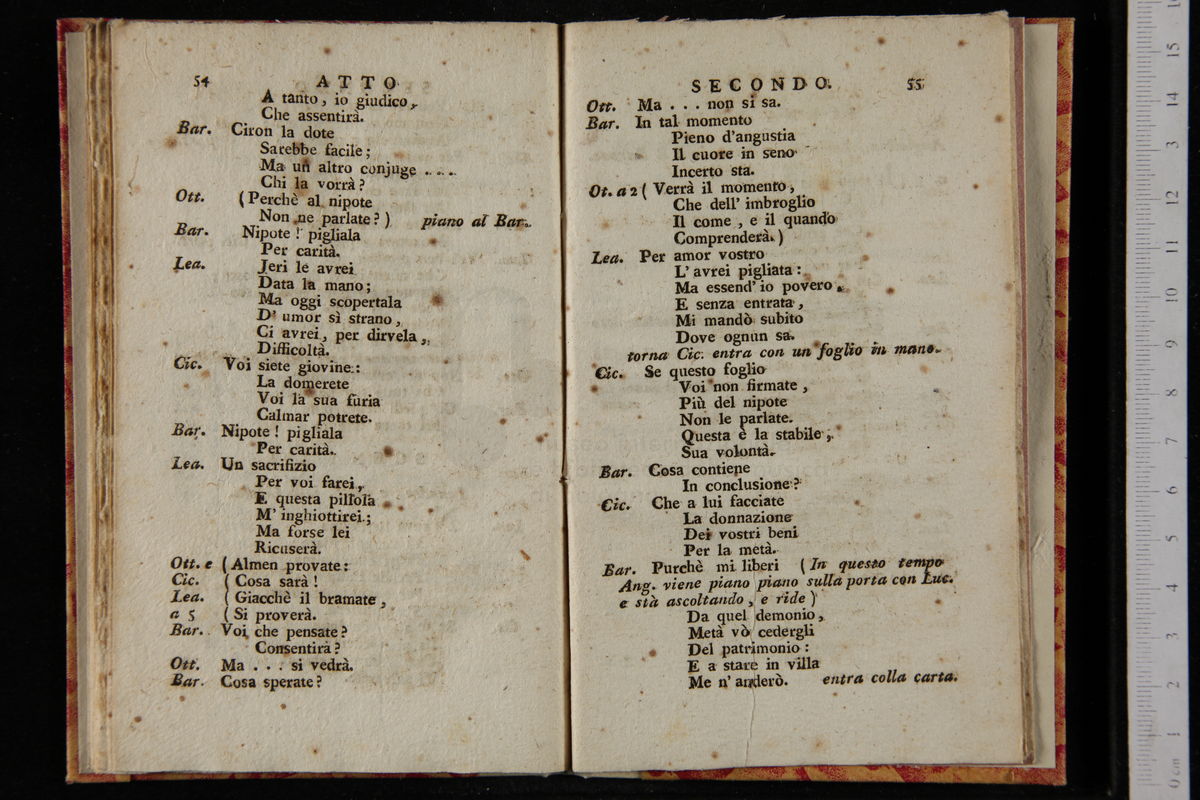 54 ATTO
A tanto, io giudico,
Che assentirà.
Bar. Ciron la dote
Sarebbe facile;
Ma un altro conjuge ....
Chi la vorrà?
Ott. (Perchè al nipote
Non ne parlate?) piano al Bar.
Bar. Nipote! pigliala
Per carità.
Lea. Jeri le avrei
Data la mano;
Ma oggi scopertala
D' umor sì strano,
Ci avrei, per dirvela,
Difficoltà.
Cic. Voi siete giovine:
La domerete
Voi la sua furia
Calmar potrete.
Bar. Nipote! pigliala
Per carità.
Lea. Un sacrifizio
Per voi farei,
E questa pillola
M' inghiottirei;
Ma forse lei
Ricuserà.
Ott. e (Almen provate:
Cic. (Cosa sarà!
Lea. (Giacchè il bramate,
a 5 (Si proverà.
Bar. Voi che pensate?
Consentirà?
Ott. Ma . . . si vedrà.
Bar. Cosa sperate?
SECONDO. 55
Ott. Ma . . . non si sa.
Bar. In tal momento
Pieno d'angustia
Il cuore in seno
Incerto sta.
Ot. a 2 (Verrà il momento,
Che dell' imbroglio
Il come, e il quando
Comprenderà.)
Lea. Per amor vostro
L' avrei pigliata:
Ma essend' io povero
E senza entrata,
Mi mandò subito
Dove ognun sa.
torna Cic. entra con un foglio in mano.
Cic. Se questo foglio
Voi non firmate,
Più del nipote
Non le parlate.
Questa è la stabile,
Sua volontà.
Bar. Cosa contiene
In conclusione?
Cic. Che a lui facciate
La donnazione
Dei vostri beni
Per la metà.
Bar. Purchè mi liberi (In questo tempo
Ang. viene piano piano sulla porta con Luc.
e stà ascoltando, e ride)
Da quel demonio,
Metà vò cedergli
Del patrimonio:
E a stare in villa
Me n' anderò. entra colla carta.
0 cm 1 2 3 4 5 6 7 8 9 10 11 12 13 14 15